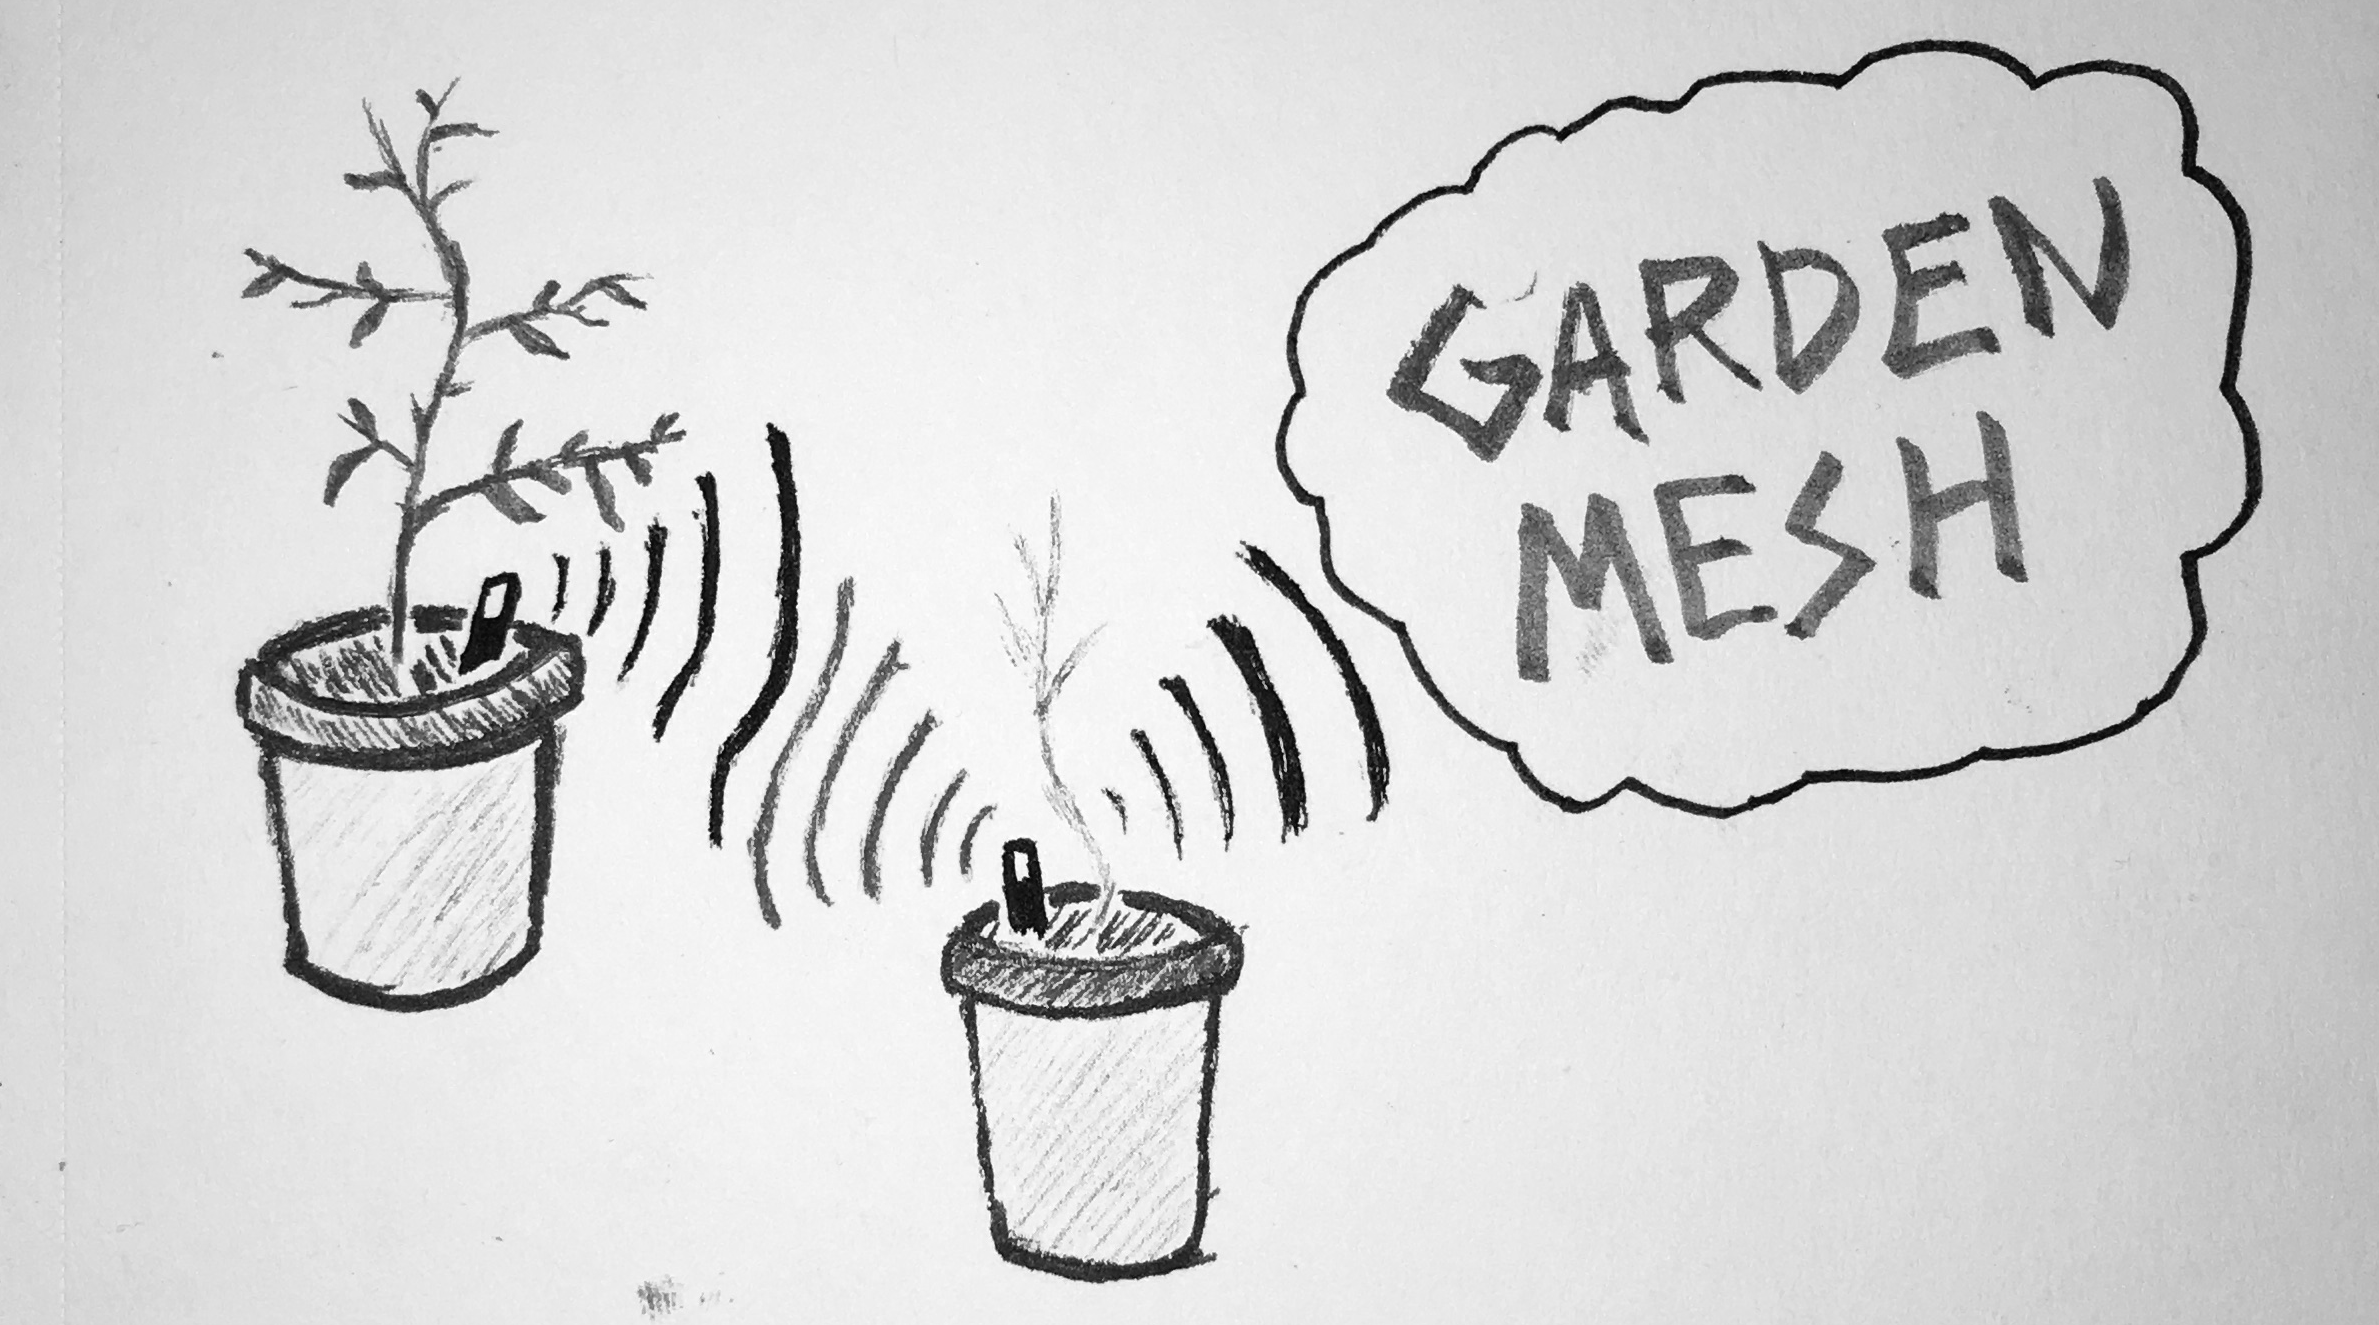 GARDEN
MESH